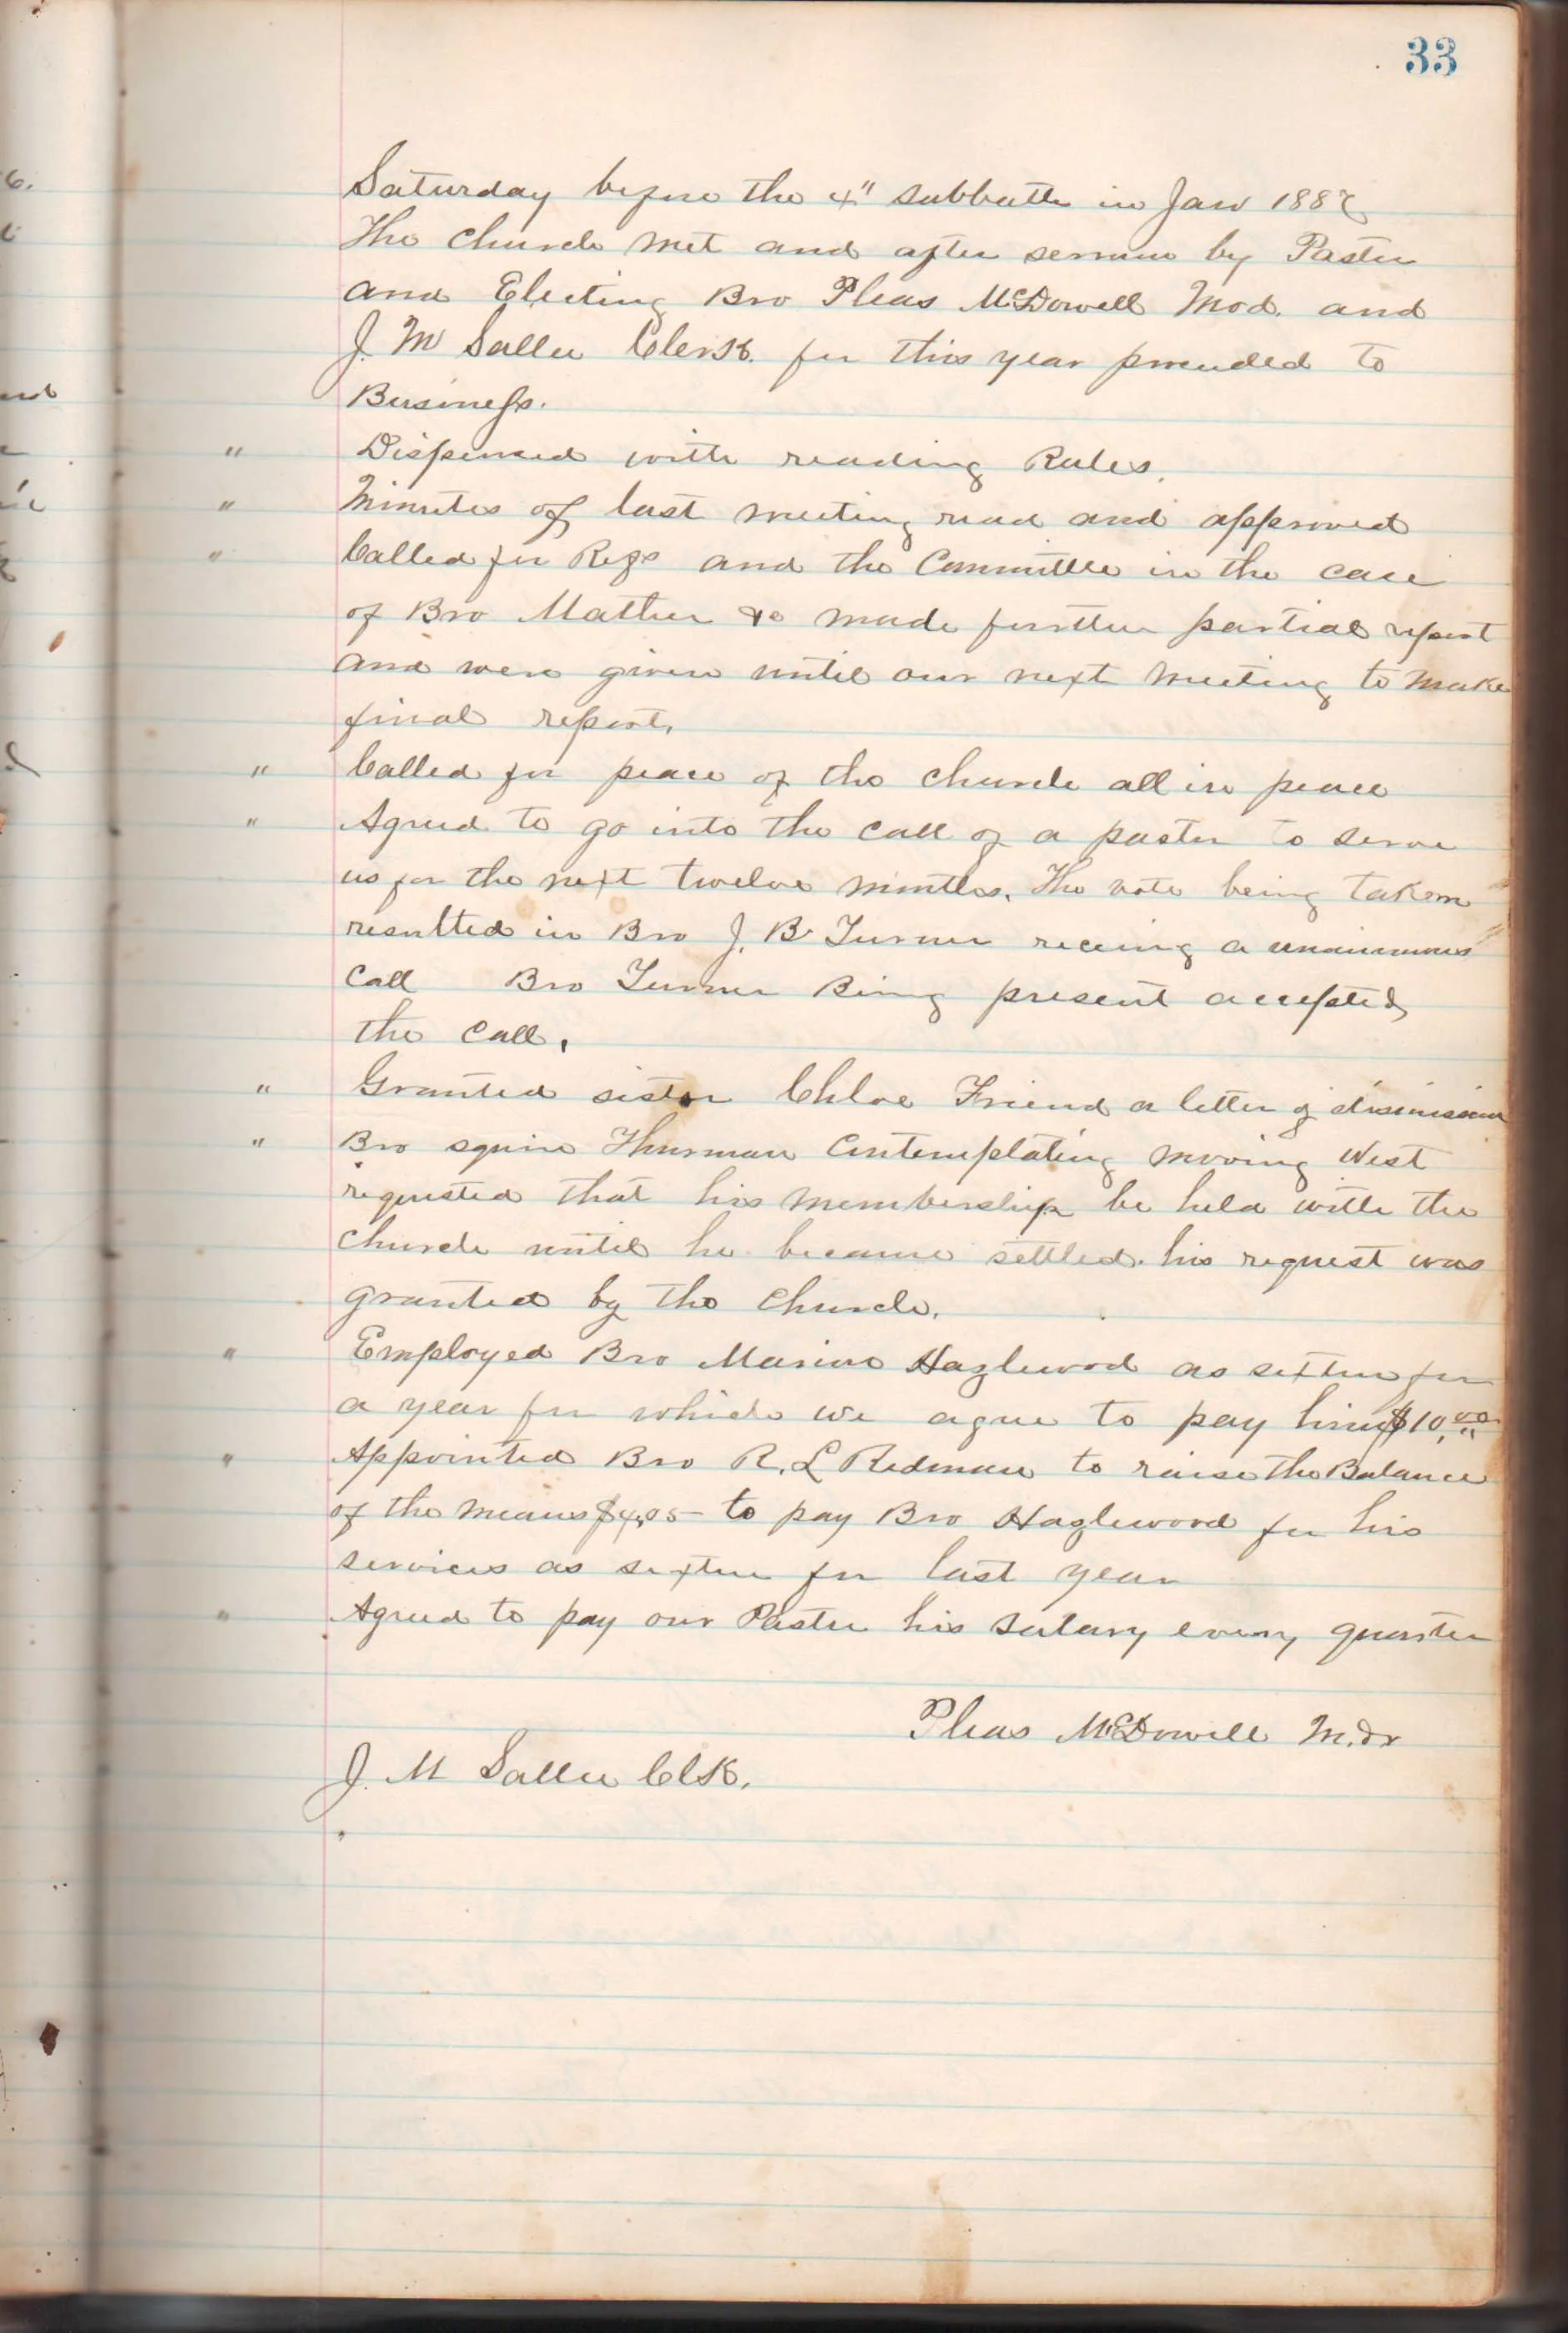 33
Saturday before the 4" sabbath in Jan 1887
The church met and after sermon by Pastor
and Electing Bro Pleas McDowell Mod. and
J. M Sallee Clerk. for this year proceeded to
Business.
" Dispensed with reading Rules.
" Minutes of last meeting read and approved
" Called for Refs and the Committee in the case
of Bro Mather &c made further partial report
and were given until our next meeting to make
final report.
" Called for peace of the church all in peace
" Agreed to go into the call of a pastor to serve
us for the next twelve months. The vote being taken
resulted in Bro J. B Turner receing a unanimous
call Bro Turner Being present accepted
the call.
" Granted sister Chloe Friend a letter of dismission
" Bro squire Thurman contemplating moving West
requested that his membership be held with the
church until he became settled. his request was
granted by the church.
" Employed Bro Marion Hazlewood as sexton for
a year for which we agree to pay him $10.00
" Appointed Bro R. L Redman to raise the Balance
of the means $4,05 to pay Bro Hazlewood for his
services as sexton for last year
" Agreed to pay our Pastor his salary every quarter
Pleas McDowell M.dr
J. M Sallee ClK.